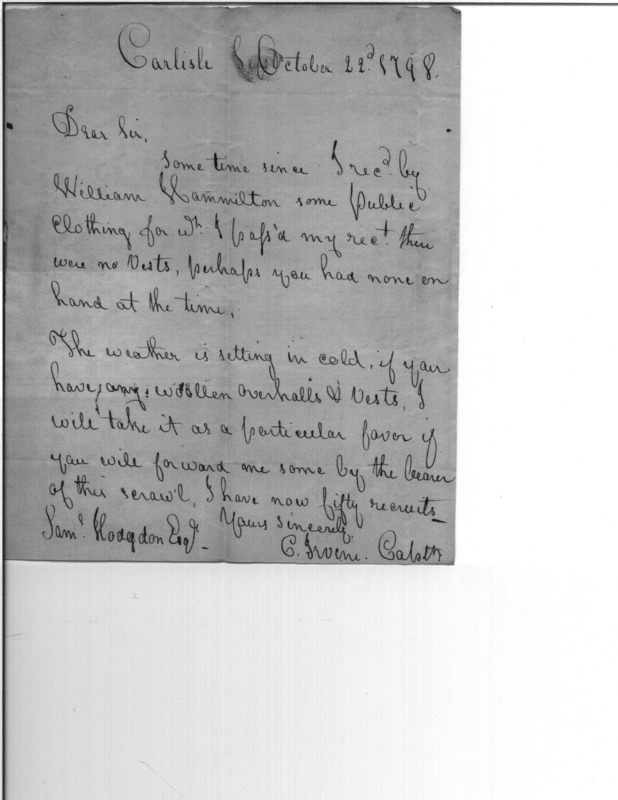 Carlisle October 22d 1798.
Dear Sir,
Some time since I recd. by
William Hammilton some Public
Clothing for wh. I pass'd my rect. there
were no Vests, perhaps you had none on
hand at the time.
The weather is setting in cold, if you
have any woollen overhalls & Vests, I
will take it as a particular favor if
you will forward me some by the bearer
of this scrawl, I have now fifty recruits_
Yours Sincerely
Saml. Hodgdon Esqr. _
C. Irvine. Captn